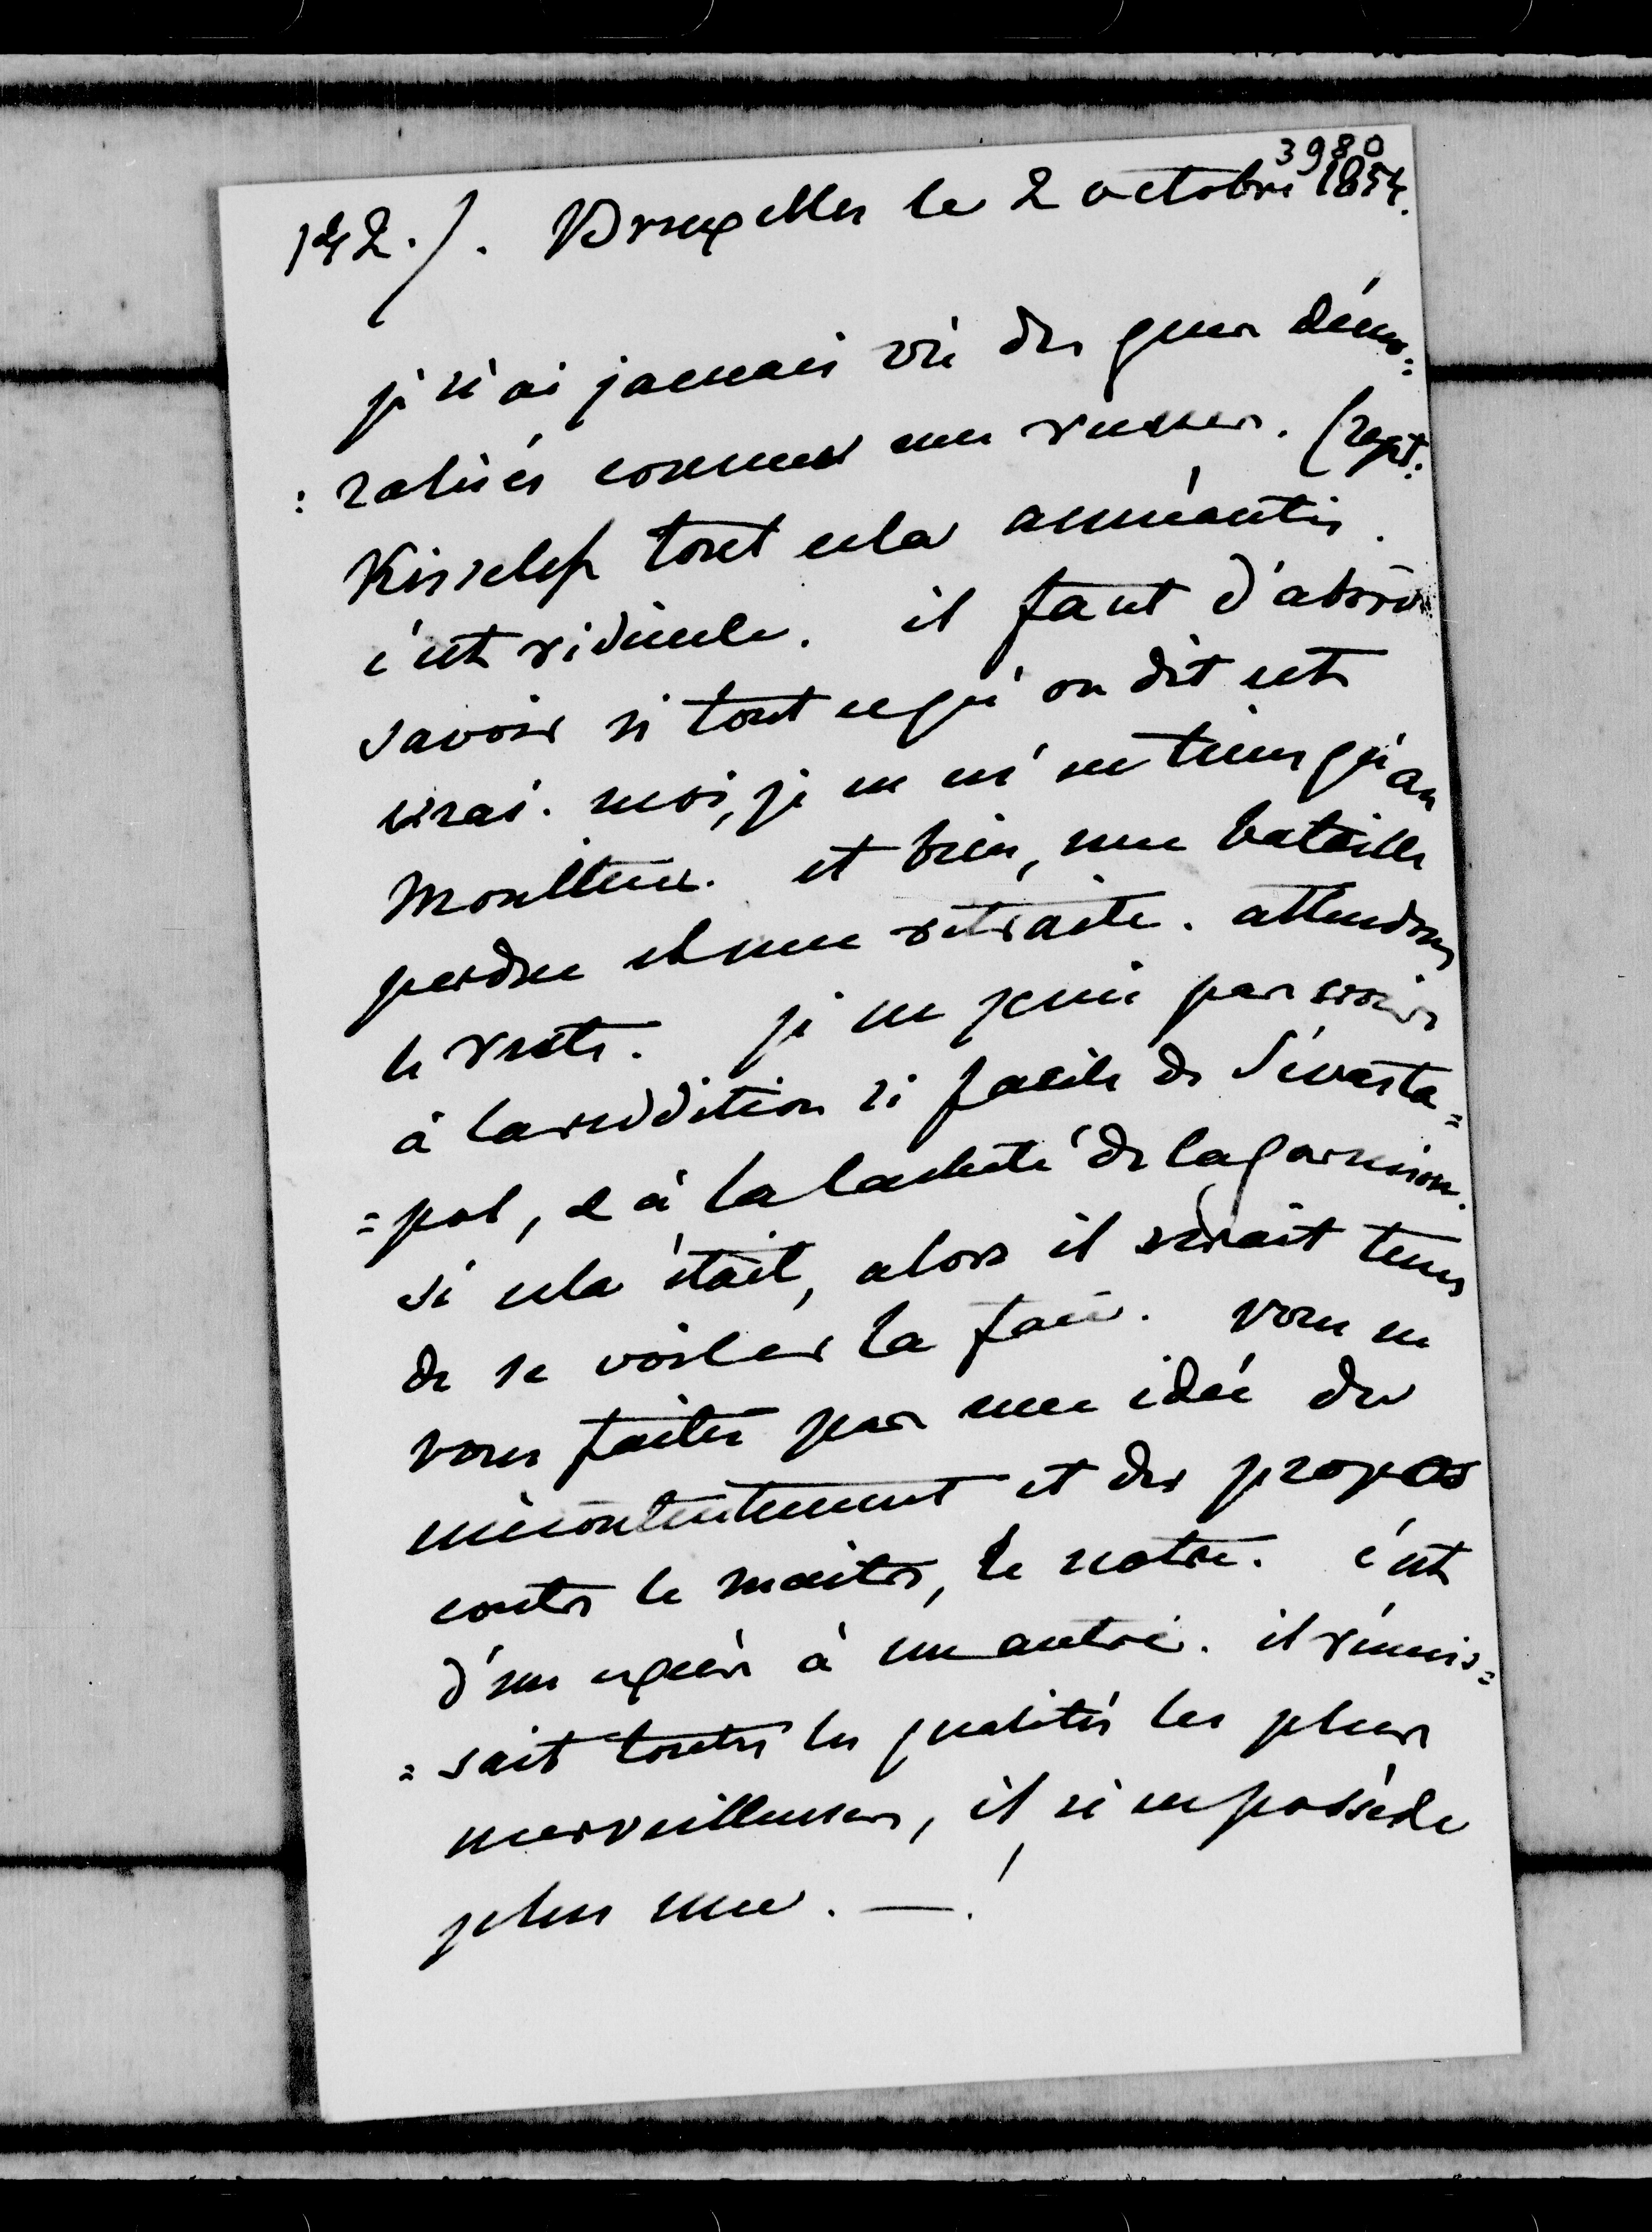 3980
142./. Bruxelles le 2 octobre 1854.
je n'ai jamais vu des gens démo=
=ralisés comme mes russes.
Kisseleff tout cela anéantis.
c'est ridicule. il faut d'abord
savoir si tout ce qu'on dit est
vrai. moi, je m'en tiens qu'au
Moniteur. et bien, une bataille
perdue et une retraite. attendons
le reste. je ne puis pas croire
à la reddition si facile de Sévasto=
=pol, & à la lacheté de la garnison.
si cela était, alors il serait tems
de se voiler la face. vous ne
vous faites pas une idée du
mécontentement et des propos
contre le maitre, le notre. c'est
d'un excès à un autre. il réunis=
=sait toutes les qualités les plus
merveilleuses, il n'en possède
plus une. — !